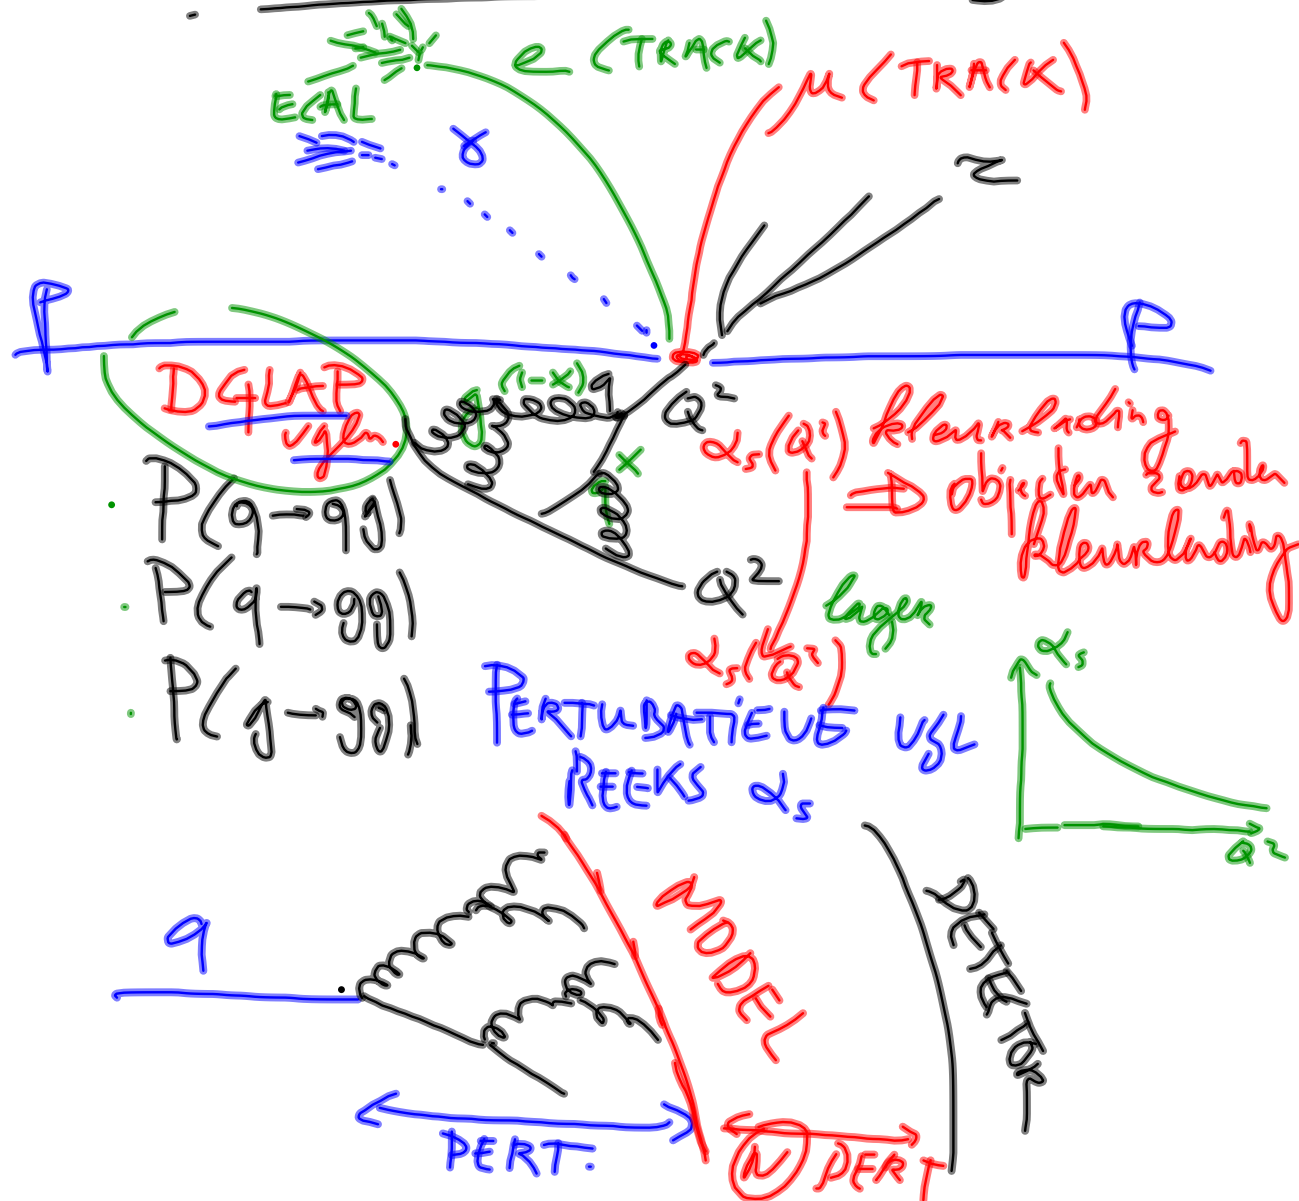 e (TRACK)
μ (TRACK)
ECAL
γ
τ
P
P
DGLAP
vgln.
g (1-x) q
Q²
x
αs(Q²)
kleurlading
⇒ objecten zonder
kleurlading
P(q→qg)
P(q→gg)
P(g→gg)
Q²
lager
αs(Q²)
αs
Q²
PERTUBATIEVE VGL
REEKS αs
q
MODEL
DETEKTOR
PERT.
N PERT